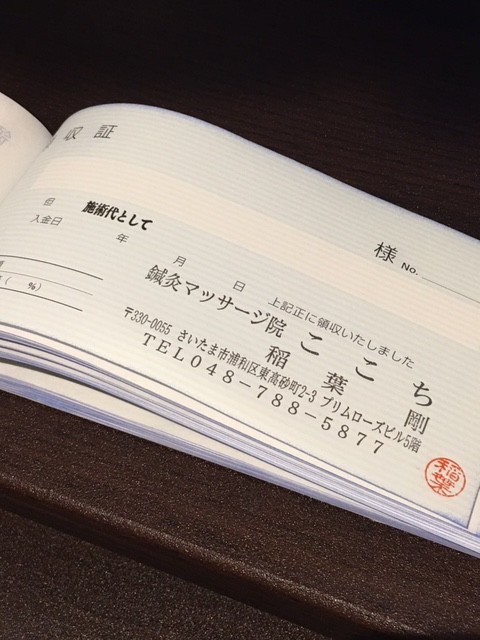 収証
様 No.
但 施術代として
入金日 年 月 日 上記正に領収いたしました
鍼灸マッサージ院 ここち
稲葉 剛
〒330-0055 さいたま市浦和区東高砂町2-3 プリムローズビル5階
TEL048-788-5877
( %)
稲葉